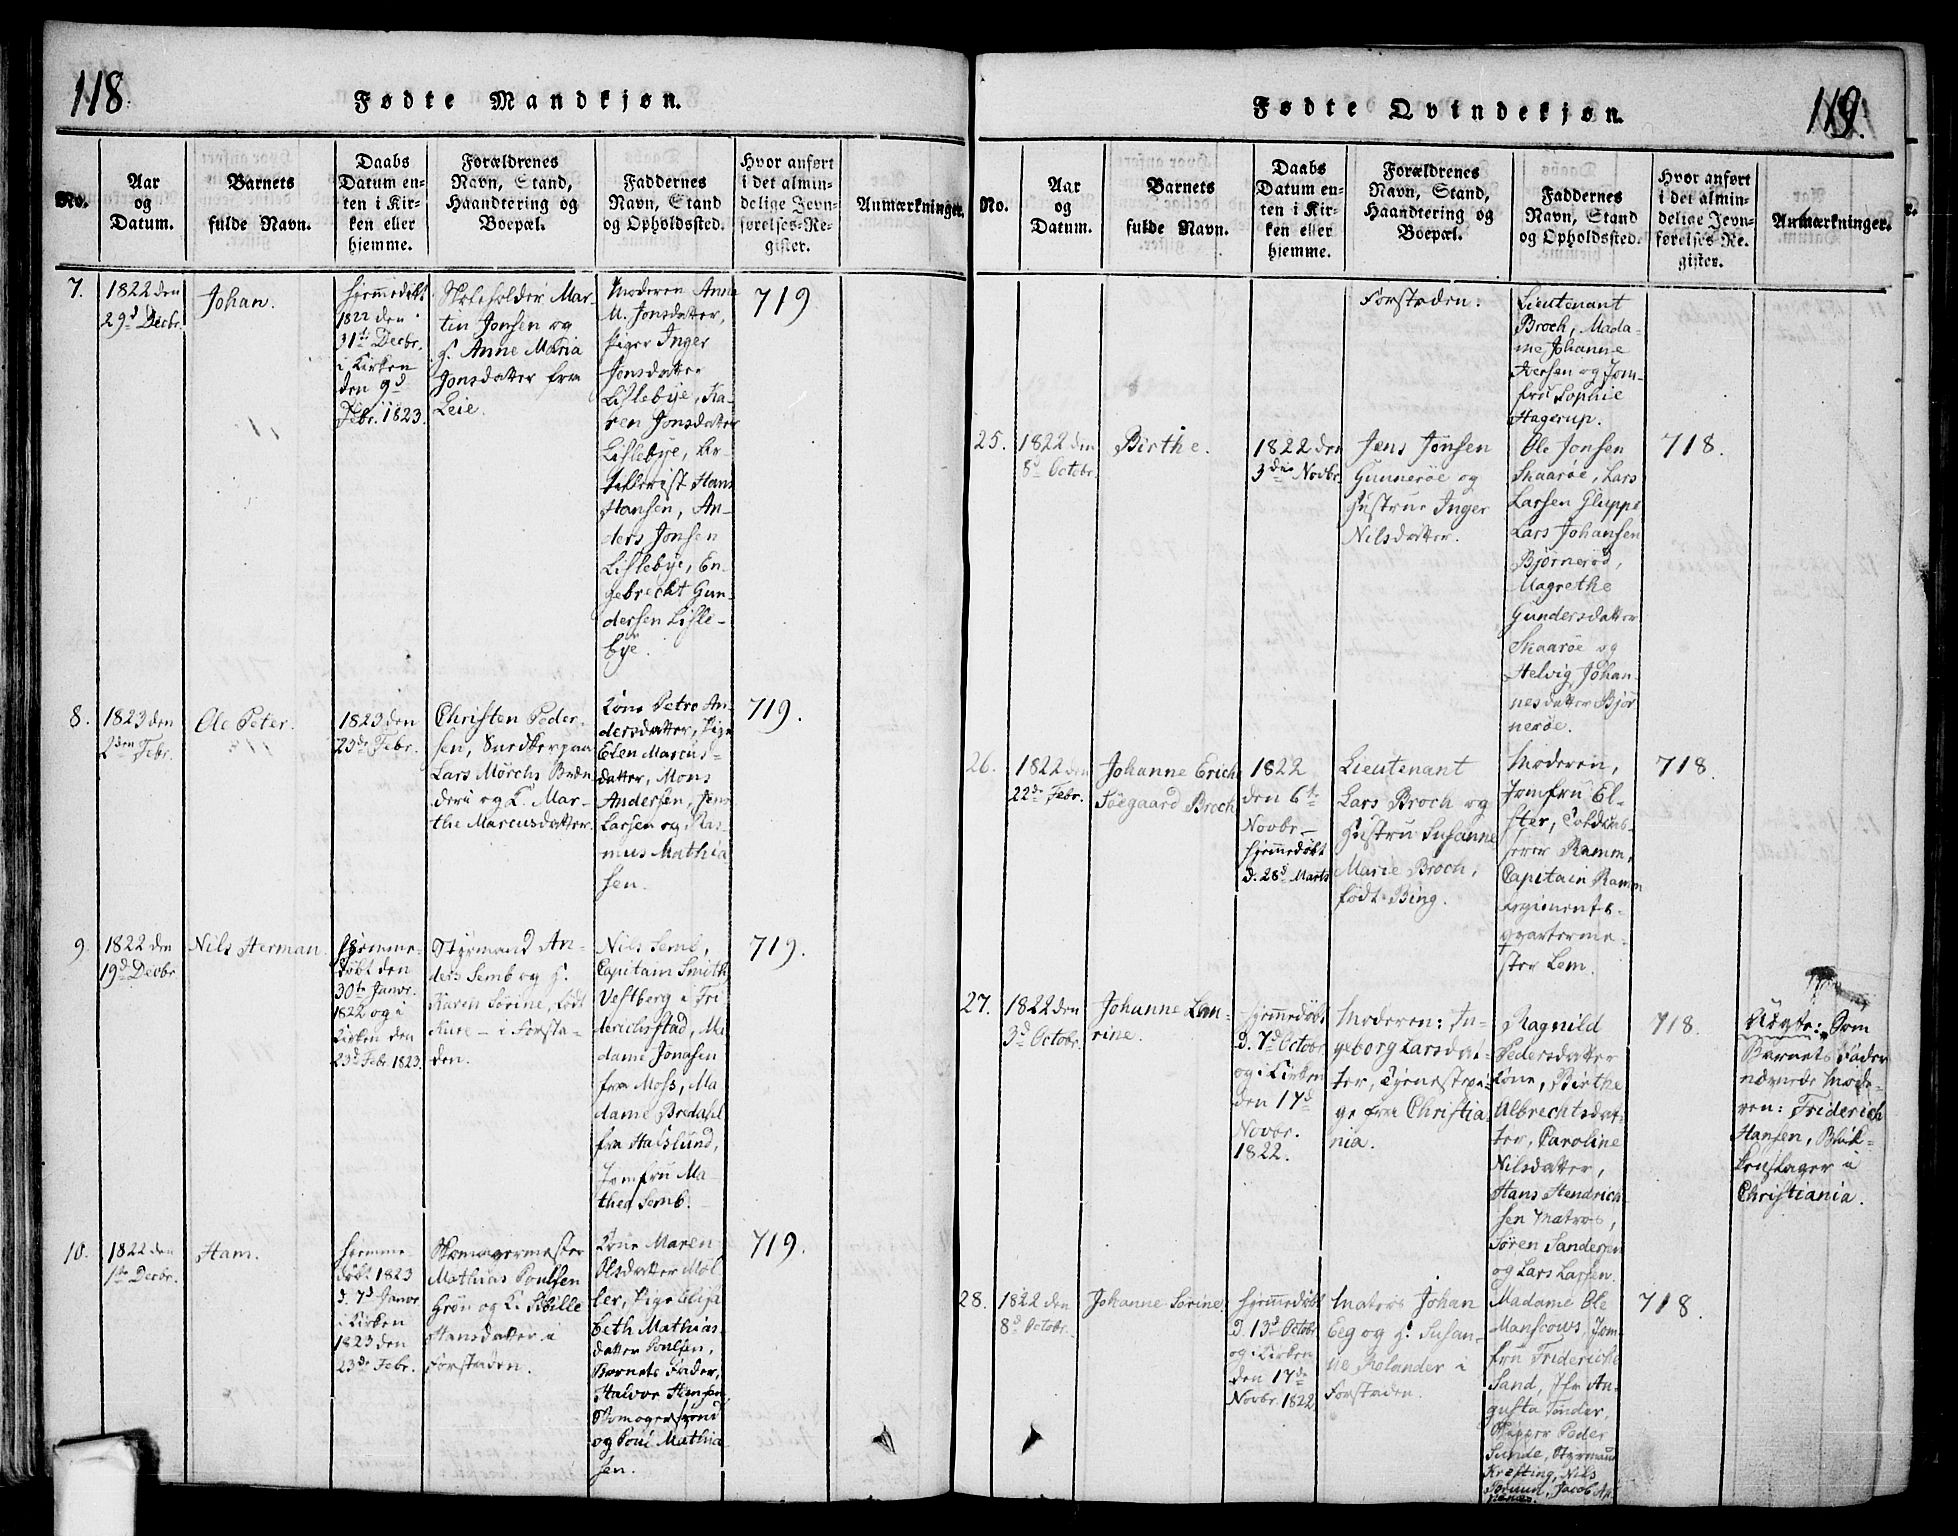 118.
Fødte Mandkjøn.
No.
Aar
og
Datum.
Barnets
fulde Navn.
Daabs
Datum en-
ten i Kir-
ken eller
hjemme.
Forældrenes
Navn, Stand,
Haandtering og
Boepæl.
Faddernes
Navn, Stand
og Opholdssted.
Hvor anført
i det almin-
delige Jevn-
førelses-Re-
gister.
Anmærkninger.
7.
1822 den
29d Decbr.
Johan.
hjemmedøbt
1822 den
31te Decbr.
i Kirken
den 9d
Febr. 1823.
Skoleholder Mar-
tin Jonsen og
H. Anne Maria
Jonsdatter fra
Leie.
Moderen Anne
M. Jonsdatter,
Pigen Inger
Jensdatter
Lislebye, Ka-
ren Jonsdatter
Lislebye, Ar-
tillerist Hans
Hansen, An-
ders Jonsen
Lislebye, En-
gebrecht Gun-
dersen Lisle-
bye.
719
8.
1823 den
2den Febr.
Ole Peter.
1823 den
23de Febr.
Christen Peder-
sen, Snedker paa
Lars Mørchs Bræn
deri og K. Mar-
the Marcusdatter.
Kone Petro An-
dersdatter, Pige
Elen Marcus-
datter, Mons
Andersen, Jens
Larsen og Ras-
mus Mathia
sen.
719.
9.
1822 den
19d Decbr.
Nils Herman.
hjemme-
døbt den
30te Janvr.
1822 og i
Kirken den
23d Febr 1823.
Styrmand An-
ders Semb og H.
Karen Sørine, født
Kure - i Forsta-
den.
Nils Semb,
Capitain Smith,
Vestberg i Fri
derichsstad, Ma
dame Jonasen
fra Moss, Ma
dame Bredahl
fra Hafslund,
Jomfru Ma
thea Semb.
719.
10.
1822 den
1ste Decbr.
Ham.
hjemme-
døbt 1823
d. 7d Janvr.
i Kirken
1823 den
23de Febr.
Skomagermester
Mathias Poulsen
Grøn og K. Sibille
Hansdatter i
Forstaden.
Kone Maren
Olsdatter Møl
ler, Pige Elisa
beth Mathias
datter Poulsen,
Barnets Fader,
Halvor Hansen
Skomagersvend
og Poul Mathia
sen.
719.
119.
Fødte Qvindekjøn.
No.
Aar
og
Datum.
Barnets
fulde Navn.
Daabs
Datum en-
ten i Kir-
ken eller
hjemme.
Forældrenes
Navn, Stand,
Haandtering og
Boepæl.
Faddernes
Navn, Stand
og Opholdssted.
Hvor anført
i det almin-
delige Jevn-
førelses-Re-
gister.
Anmærkninger.
Forstaden.
Lieutenant
Broch, Mada-
me Johanne
Iversen og Jom-
fru Sophie
Hagerup.
25.
1822 den
8d Octbr.
Birthe.
1822 den
3die Novbr.
Jens Jonsen
Gunnerøe og
Hustrue Inger
Nilsdatter.
Ole Jonsen
Skaarøe, Lars
Larsen Gluppe
Lars Johansen
Bjørnerød,
Magrethe
Gundersdatter
Skaarøe og
Helvig Johan-
nesdatter Bjør
nerøe.
718.
26.
1822 den
22de Febr.
Johanne Erich
Søegaard Broch
1822
den 6te
Novbr -
hjemmedøbt
d. 28d Marts
Lieutenant
Lars Broch og
Hustru Susanne
Marie Broch,
født Bing.
Moderen,
Jomfru El-
ster, Toldcas-
serer Ramm,
Capitain Ramm
Regiments-
qvarterme-
ster Lem.
718.
27.
1822 den
3d Octobr.
Johanne Lau-
rine.
hjemmedøbt
d. 7d Octobr.
og i Kirken
den 17d
Novbr.
1822.
Moderen: In-
geborg Larsdat-
ter, Tjenestepi-
ge fra Christia-
nia.
Ragnild
Pedersdatter
Kone, Birthe
Albrechtsdat-
ter, Caroline
Nilsdatter,
Hans Hendrich-
sen Matros,
Søren Sandersen
og Lars Larsen.
718.
Uægte: Som
Barnets Fader
nævnede Mode-
ren: Friderich
Hansen, Blik-
kenslager i
Christiania.
28.
1822 den
8d Octobr.
Johanne Sørine.
hjemmedøbt
d. 13d Octobr
og i Kirken
den 17de
Novbr. 1822
Matros Johan
Eeg og H. Susan-
ne Rolander i
Forstaden.
Madame Ole
Manscows, Jom-
fru Frideriche
Sand, Jfr Au-
gusta Tønder,
Skipper Peder
Sunde, Styrmand
Krefting, Nils
Brun, Jacob
718